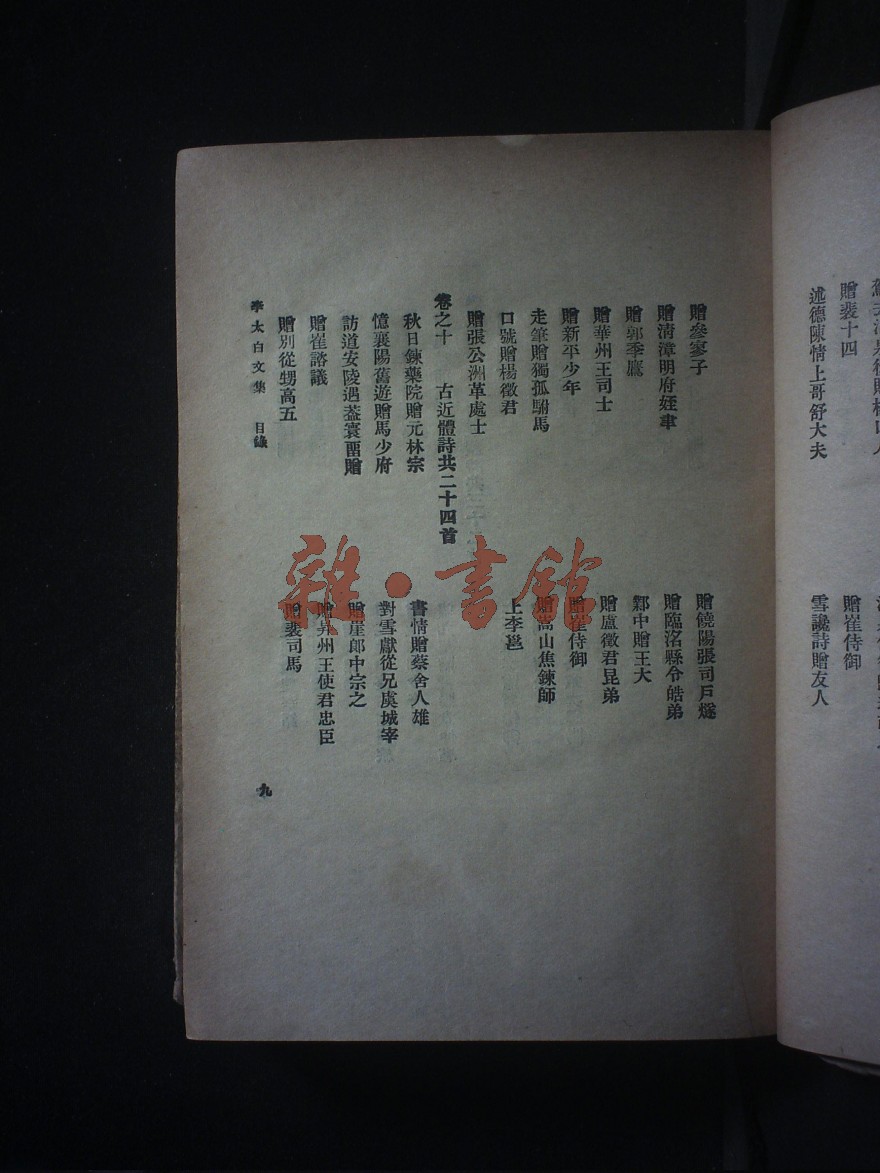 贈裴十四
贈崔侍御
述德陳情上哥舒大夫
雪讒詩贈友人
贈參寥子
贈饒陽張司戶燧
贈清漳明府姪聿
贈臨洺縣令皓弟
贈郭季鷹
鄴中贈王大
贈華州王司士
贈盧徵君昆弟
贈新平少年
贈崔侍御
走筆贈獨孤駙馬
贈嵩山焦鍊師
口號贈楊徵君
上李邕
贈張公洲革處士
卷之十 古近體詩共二十四首
秋日鍊藥院贈元林宗
書情贈蔡舍人雄
憶襄陽舊遊贈馬少府
對雪獻從兄虞城宰
訪道安陵遇葢寰畱贈
贈崖郎中宗之
贈崔諮議
贈昇州王使君忠臣
贈別從甥高五
贈裴司馬
李太白文集 目錄 九
雜·書館